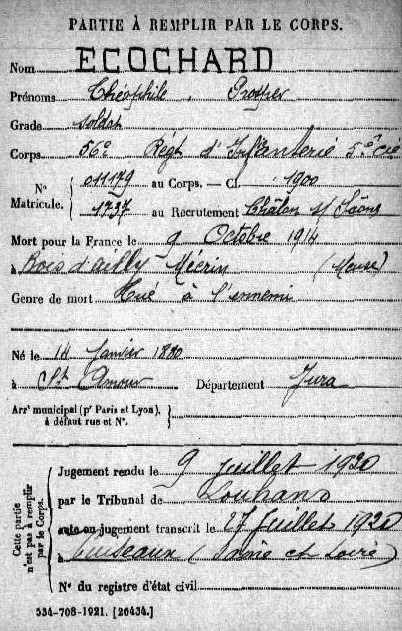 PARTIE À REMPLIR PAR LE CORPS.
Nom ECOCHARD
Prénoms Théophile, Prosper
Grade soldat
Corps 56e Régt d'Infanterie 5e Cie
N° Matricule. { 011179 au Corps. — Cl. 1900
1737 au Recrutement Châlon s/ Saône
Mort pour la France le 9 Octobre 1914
à Bois d'ailly Mécrin (Meuse)
Genre de mort Tué à l'ennemi
Né le 14 Janvier 1880
à St Amour Département Jura
Arrt municipal (pr Paris et Lyon), à défaut rue et N°. }
Cette partie n'est pas à remplir par le Corps.
Jugement rendu le 9 Juillet 1920
par le Tribunal de Louhans
acte ou jugement transcrit le 27 Juillet 1920
à Cuiseaux (Saône et Loire)
N° du registre d'état civil
534-708-1921. [26434.]